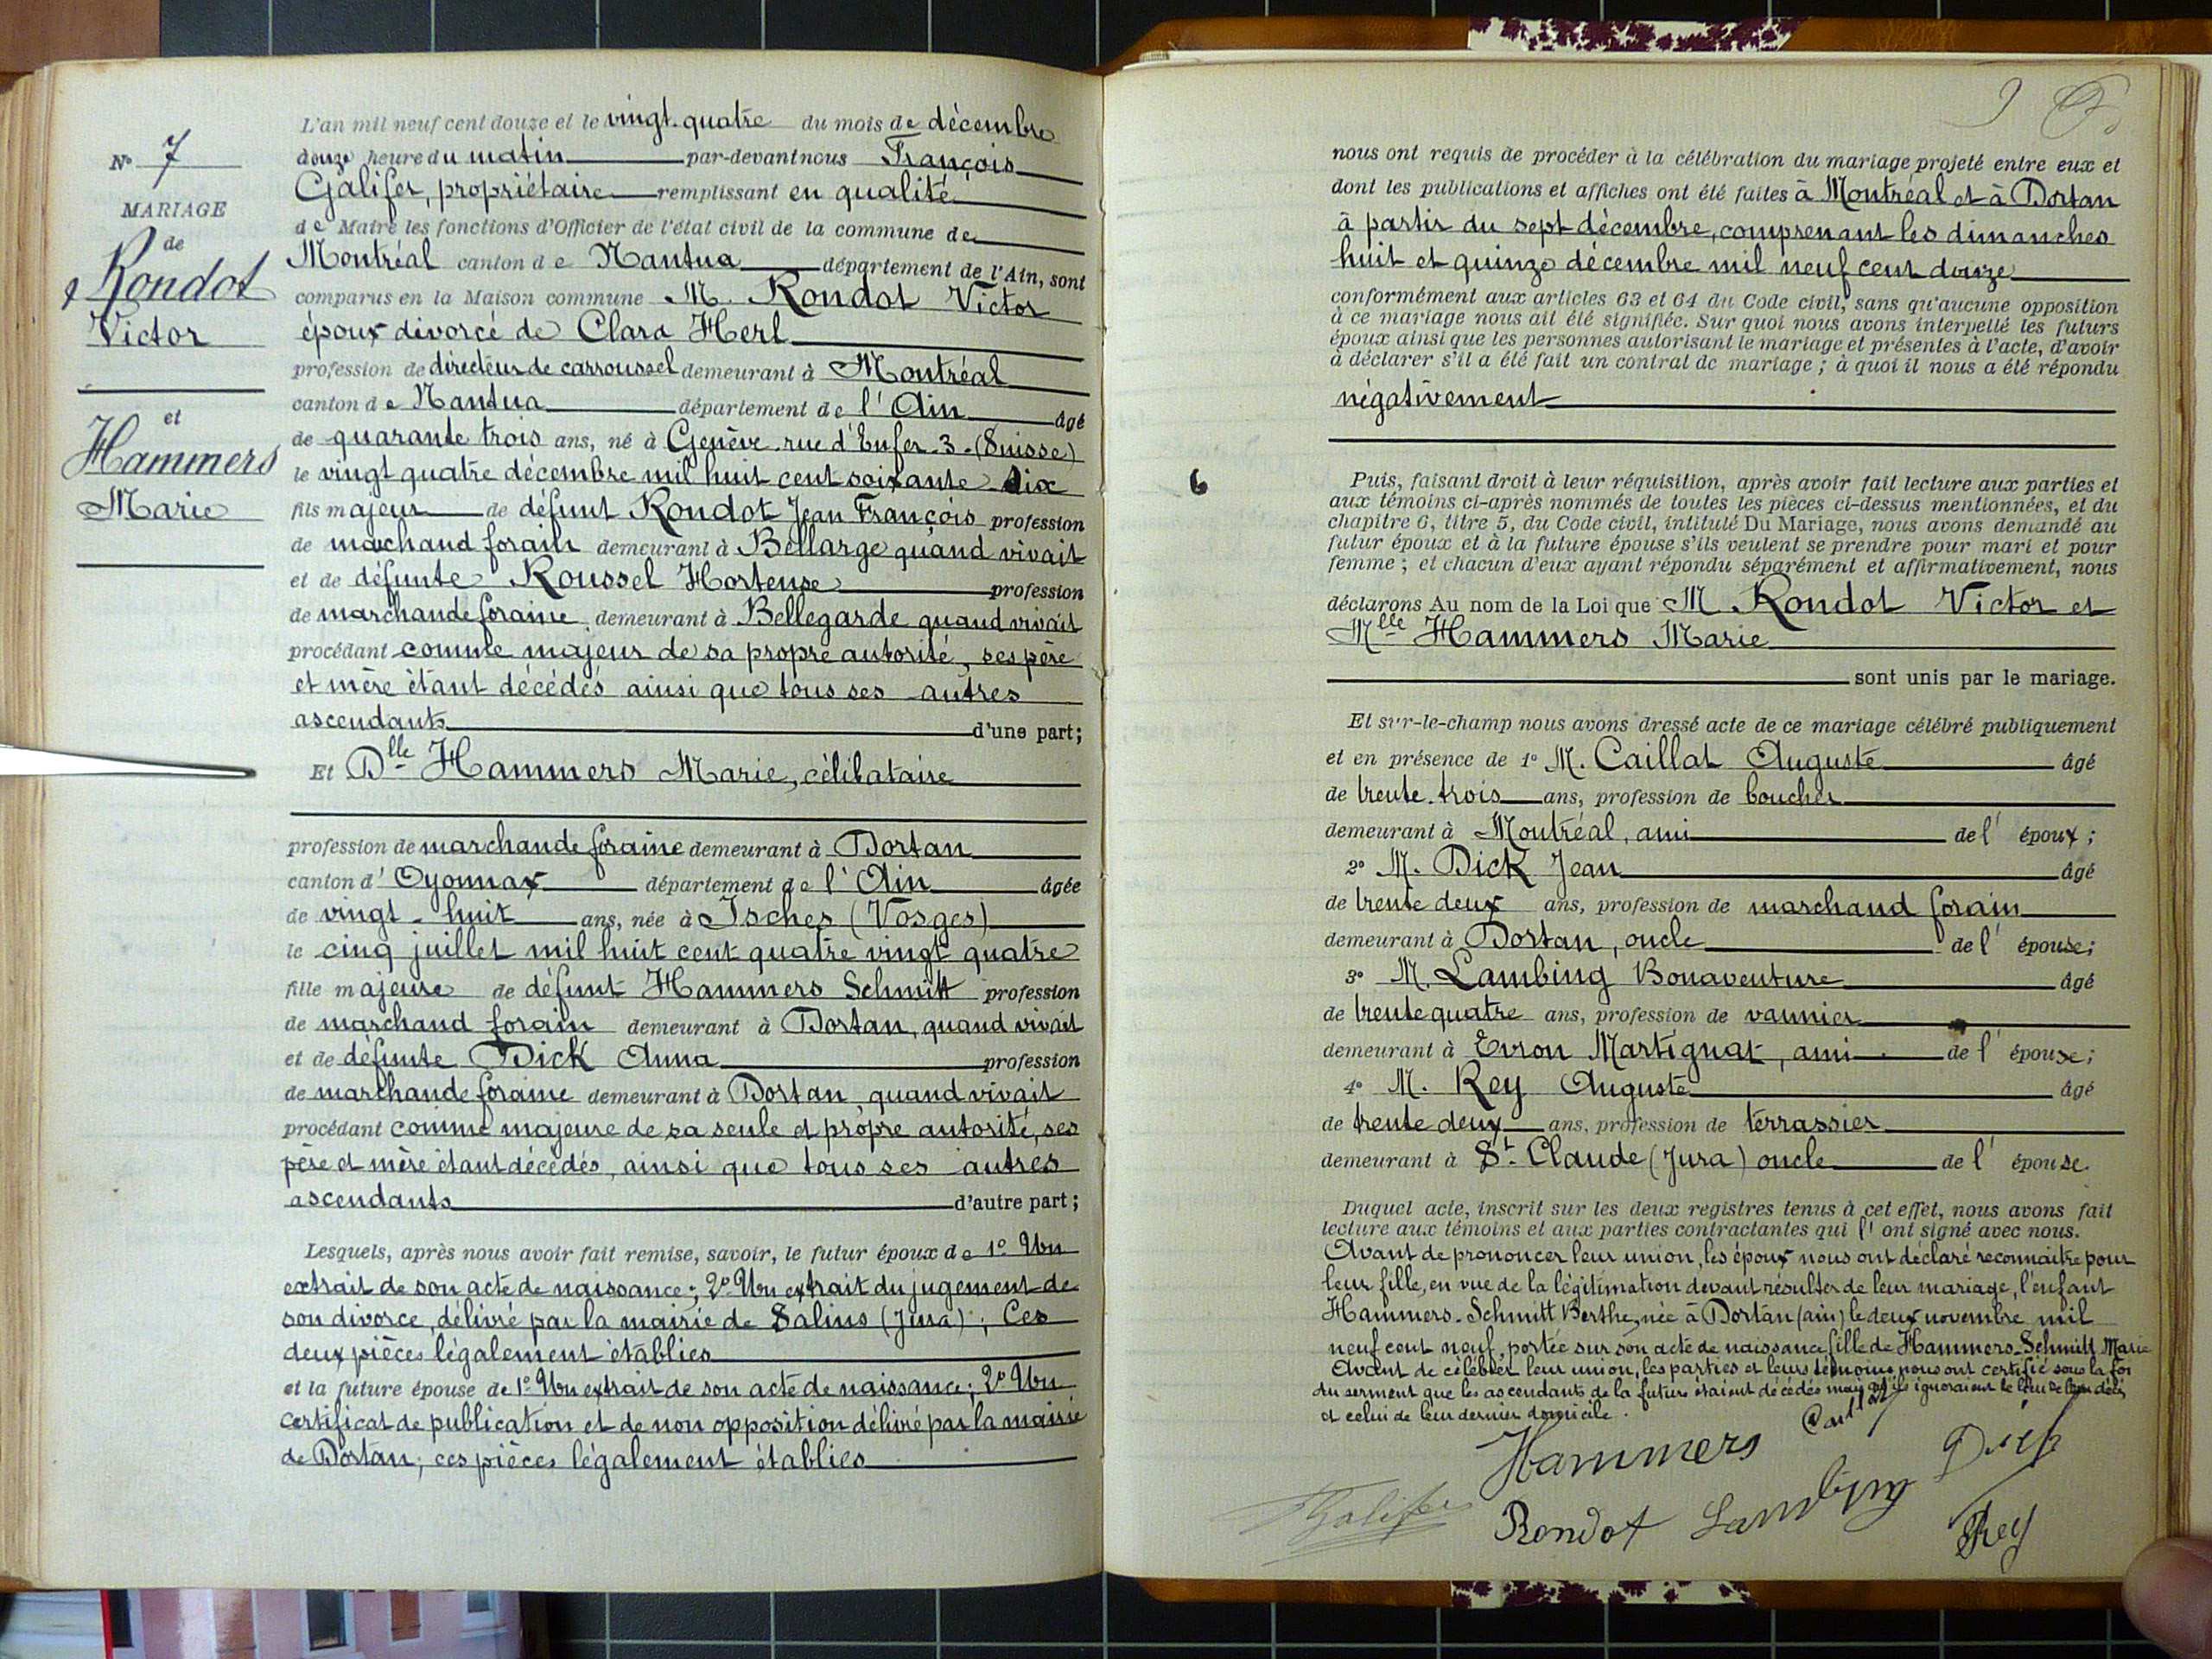 N° 7
MARIAGE
de
Rondot
Victor
et
Hammers
Marie
L'an mil neuf cent douze et le vingt-quatre du mois de décembre
douze heure du matin par-devant nous François
Galifer, propriétaire remplissant en qualité
de Maire les fonctions d'Officier de l'état civil de la commune de
Montréal canton de Nantua département de l'Ain, sont
comparus en la Maison commune M. Rondot Victor
époux divorcé de Clara Herl
profession de directeur de carroussel demeurant à Montréal
canton de Nantua département de l'Ain âgé
de quarante trois ans, né à Genève rue d'Enfer 3 (Suisse)
le vingt quatre décembre mil huit cent soixante dix
fils majeur de défunt Rondot Jean François profession
de marchand forain demeurant à Bellarge quand vivait
et de défunte Roussel Hortense profession
de marchande foraine demeurant à Bellegarde quand vivait
procédant comme majeur de sa propre autorité, ses père
et mère étant décédés ainsi que tous ses autres
ascendants d'une part;
Et Dlle Hammers Marie, célibataire
profession de marchande foraine demeurant à Dortan
canton d'Oyonnax département de l'Ain âgée
de vingt-huit ans, née à Isches (Vosges)
le cinq juillet mil huit cent quatre vingt quatre
fille majeure de défunt Hammers Schmitt profession
de marchand forain demeurant à Dortan, quand vivait
et de défunte Dick Anna profession
de marchande foraine demeurant à Dortan, quand vivait
procédant comme majeure de sa seule et propre autorité, ses
père et mère étant décédés, ainsi que tous ses autres
ascendants d'autre part;
Lesquels, après nous avoir fait remise, savoir, le futur époux de 1° Un
extrait de son acte de naissance; 2° Un extrait du jugement de
son divorce, délivré par la mairie de Salins (Jura); Ces
deux pièces légalement établies
et la future épouse de 1° Un extrait de son acte de naissance; 2° Un
certificat de publication et de non opposition délivré par la mairie
de Dortan, ces pièces légalement établies
9
nous ont requis de procéder à la célébration du mariage projeté entre eux et
dont les publications et affiches ont été faites à Montréal et à Dortan
à partir du sept décembre, comprenant les dimanches
huit et quinze décembre mil neuf cent douze
conformément aux articles 63 et 64 du Code civil, sans qu'aucune opposition
à ce mariage nous ait été signifiée. Sur quoi nous avons interpellé les futurs
époux ainsi que les personnes autorisant le mariage et présentes à l'acte, d'avoir
à déclarer s'il a été fait un contrat de mariage; à quoi il nous a été répondu
négativement
6
Puis, faisant droit à leur réquisition, après avoir fait lecture aux parties et
aux témoins ci-après nommés de toutes les pièces ci-dessus mentionnées, et du
chapitre 6, titre 5, du Code civil, intitulé Du Mariage, nous avons demandé au
futur époux et à la future épouse s'ils veulent se prendre pour mari et pour
femme; et chacun d'eux ayant répondu séparément et affirmativement, nous
déclarons Au nom de la Loi que M Rondot Victor et
Mlle Hammers Marie
sont unis par le mariage.
Et sur-le-champ nous avons dressé acte de ce mariage célébré publiquement
et en présence de 1° M. Caillat Auguste âgé
de trente-trois ans, profession de boucher
demeurant à Montréal, ami de l'époux;
2° M. Dick Jean âgé
de trente deux ans, profession de marchand forain
demeurant à Dortan, oncle de l'épouse;
3° M. Lambing Bonaventure âgé
de trente quatre ans, profession de vannier
demeurant à Evron Martignat, ami de l'épouse;
4° M. Rey Auguste âgé
de trente deux ans, profession de terrassier
demeurant à St Claude (Jura) oncle de l'épouse.
Duquel acte, inscrit sur les deux registres tenus à cet effet, nous avons fait
lecture aux témoins et aux parties contractantes qui l'ont signé avec nous.
Avant de prononcer leur union, les époux nous ont déclaré reconnaitre pour
leur fille, en vue de la légitimation devant résulter de leur mariage, l'enfant
Hammers-Schmitt Berthe, née à Dortan (ain) le deux novembre mil
neuf cent neuf, portée sur son acte de naissance fille de Hammers-Schmitt Marie
Avant de célébrer leur union, les parties et leurs témoins nous ont certifié sous la foi
du serment que les ascendants de la future étaient décédés mais qu'ils ignoraient le lieu de leur décès
et celui de leur dernier domicile.
Hammers
Dick
Galifer
Rondot
Lambing
Rey